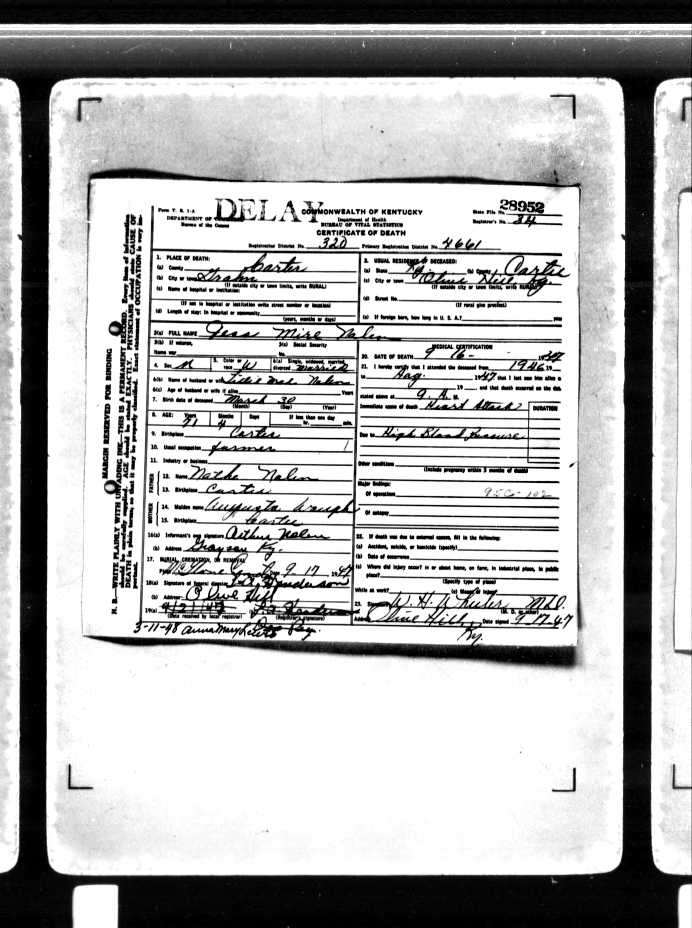 Form V. S. 1-A
DEPARTMENT OF
Bureau of the Census
DELAY
COMMONWEALTH OF KENTUCKY
Department of Health
BUREAU OF VITAL STATISTICS
CERTIFICATE OF DEATH
State File No. 28952
Registrar's No. 34
Registration District No. 320 Primary Registration District No. 4661
MARGIN RESERVED FOR BINDING
N. B.—WRITE PLAINLY WITH UNFADING INK—THIS IS A PERMANENT RECORD. Every item of information
should be carefully supplied. AGE should be stated EXACTLY. PHYSICIANS should state CAUSE OF
DEATH in plain terms, so that it may be properly classified. Exact statement of OCCUPATION is very im-
portant.
1. PLACE OF DEATH:
(a) County Carter
(b) City or town Grahn
(If outside city or town limits, write RURAL)
(c) Name of hospital or institution:
(If not in hospital or institution write street number or location)
(d) Length of stay: In hospital or community
(years, months or days)
2. USUAL RESIDENCE OF DECEASED:
(a) State Ky. (b) County Carter
(c) City or town Olive Hill Ky
(If outside city or town limits, write RURAL)
(d) Street No.
(If rural give precinct)
(e) If foreign born, how long in U. S. A.? years
3(a) FULL NAME Jess Mire Nolen
3(b) If veteran, 3(c) Social Security
Name war No.
4. Sex M 5. Color or race W 6(a) Single, widowed, married, divorced Married
6(b) Name of husband or wife Lidie Mae Nolen
6(c) Age of husband or wife if alive Years
7. Birth date of deceased March 30
(Month) (Day) (Year)
8. AGE: Years Months Days If less than one day
71 4 hr. min.
9. Birthplace Carter
10. Usual occupation farmer
11. Industry or business
FATHER
12. Name Nathe Nolen
13. Birthplace Carter
MOTHER
14. Maiden name Augusta Waugh
15. Birthplace Carter
16(a) Informant's own signature Arthur Nolen
(b) Address Grayson Ky.
17. BURIAL, CREMATION, OR REMOVAL
Place McGlone Date 9-17 1947
18(a) Signature of funeral director Henderson
(b) Address Olive Hill
19(a) 9/21/47 (b) Henderson
(Date received by local registrar) (Registrar's signature)
MEDICAL CERTIFICATION
20. DATE OF DEATH 9 16- 1947
21. I hereby certify that I attended the deceased from 1946 19
to Aug. 1947 that I last saw him alive o
19 and that death occurred on the date
stated above at 9 A. M.
Immediate cause of death Heart Attack DURATION
Due to High Blood Pressure
Other conditions
(Include pregnancy within 3 months of death)
Major findings:
Of operations
Of autopsy
22. If death was due to external causes, fill in the following:
(a) Accident, suicide, or homicide (specify)
(b) Date of occurrence
(c) Where did injury occur? In or about home, on farm, in industrial place, in public
place?
(Specify type of place)
While at work? (e) Means of injury
23. Signature W. H. Wheeler M.D.
(M. D. or other)
Address Olive Hill Ky. Date signed 9-17-47
3-11-48 Anna Mary